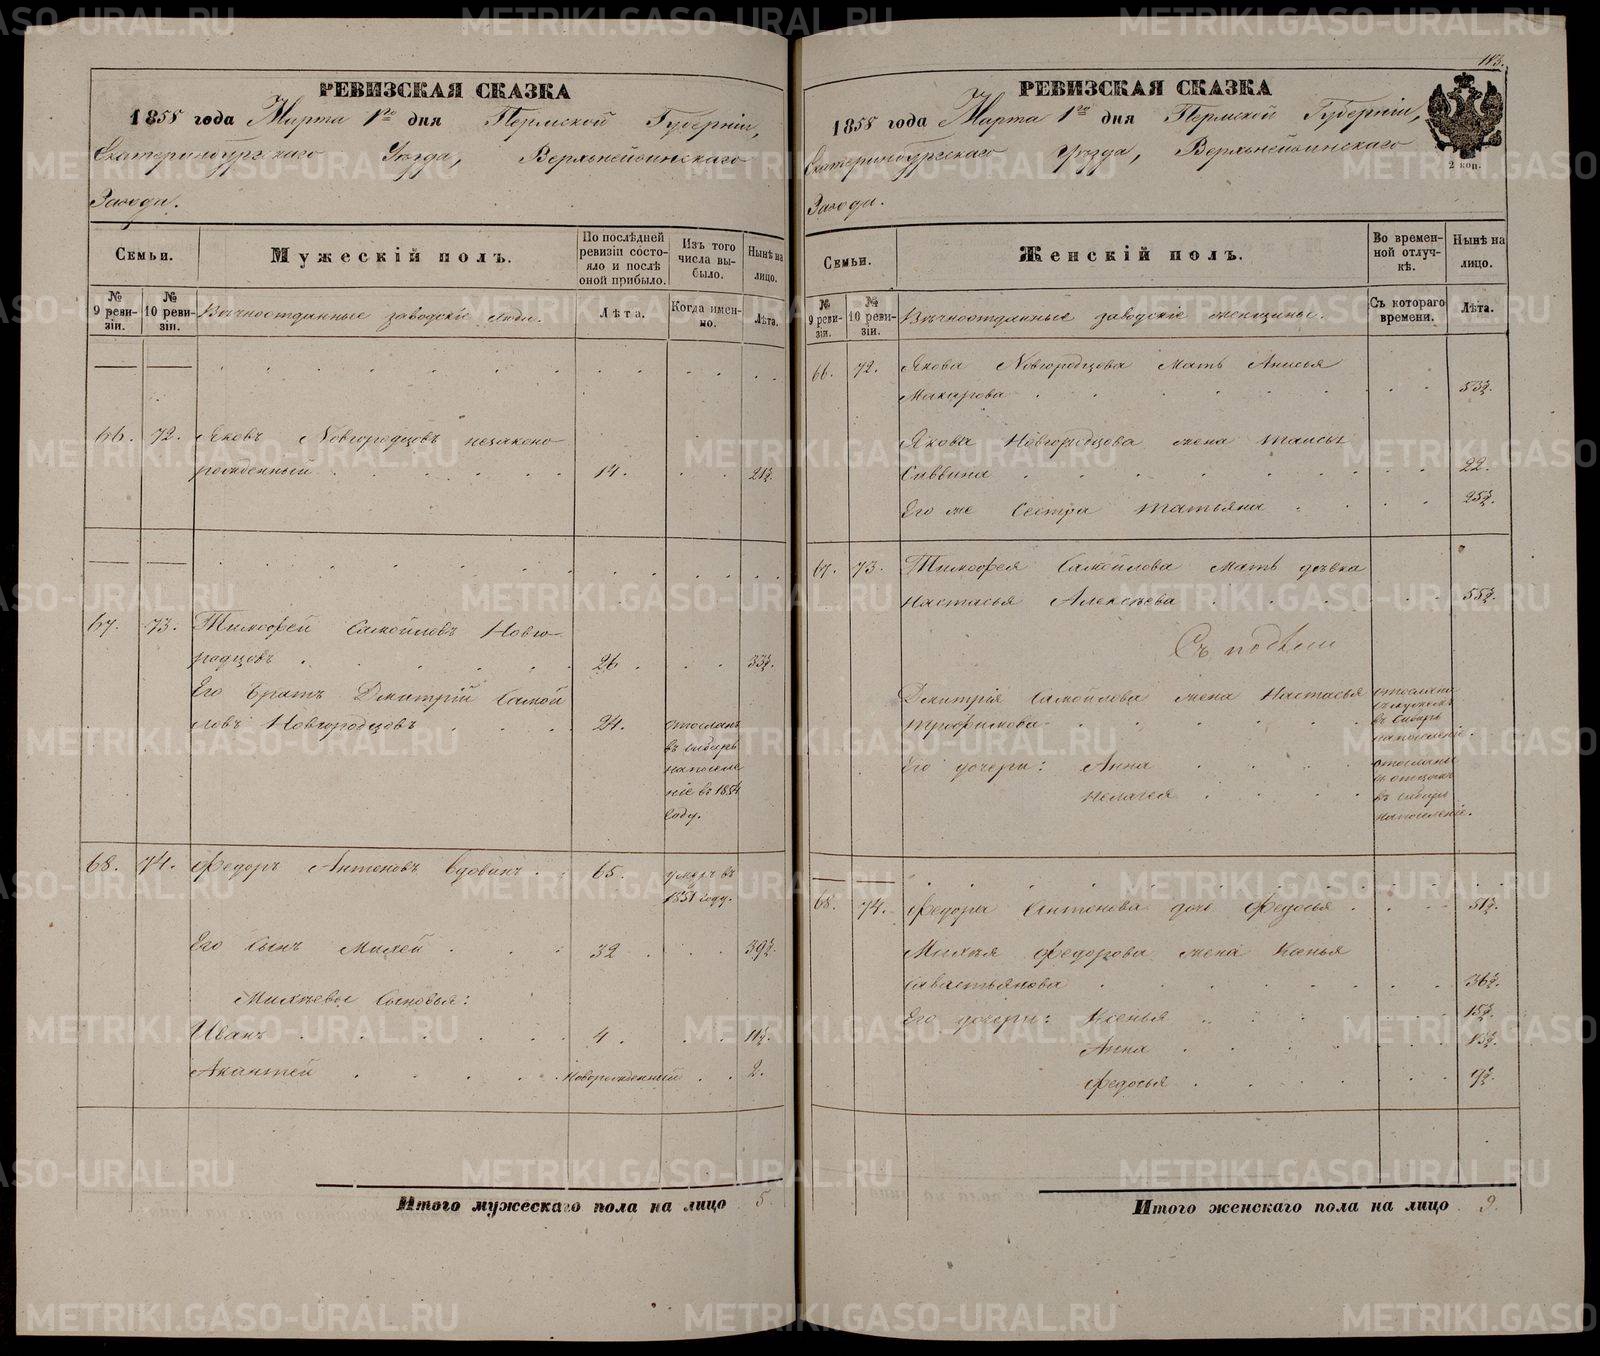 РЕВИЗСКАЯ СКАЗКА
1858 года Марта 1го дня Пермской Губерніи,
Екатеринбургскаго Уезда, Верхънейвинскаго
Завода.
Семьи.
Мужескій полъ.
По послѣдней ревизіи состояло и послѣ оной прибыло.
Изъ того числа выбыло.
Нынѣ на лицо.
№ 9 ревизіи.
№ 10 ревизіи.
Вѣчноотданные заводскіе люди.
Лѣта.
Когда именно.
Лѣта.
66. 72. Яковъ Новгородцовъ незаконо-
рожденный 14. 21½.
67. 73. Тимофей Самойловъ Новго-
родцовъ 26 33½.
Его Братъ Дмитрій Самой
ловъ Новгородцовъ 24. отосланъ
въ Сибирь
на поселе
ніе въ 1854
году.
68. 74. Федоръ Антоновъ Вдовинъ 65. умеръ въ
1851 году.
Его Сынъ Михей 32 39½.
Михѣевы Сыновья:
Иванъ 4. 11½.
Новорожденный 2.
Итого мужескаго пола на лицо 5.
113.
РЕВИЗСКАЯ СКАЗКА
1858 года Марта 1го дня Пермской Губерніи,
Екатеринбургскаго Уезда, Верхънейвинскаго
Завода.
2 коп.
Семьи.
Женскій полъ.
Во временной отлучкѣ.
Нынѣ на лицо.
№ 9 ревизіи.
№ 10 ревизіи.
Вѣчноотданные заводскіе женщины.
Съ котораго времени.
Лѣта.
66. 72. Якова Новгородцова мать Анисья
Макарова 53½.
Якова Новгородцова жена Таисья
Саввина 22.
Его же Сестра Татьяна 25½.
67. 73. Тимофея Самойлова мать дѣвка
Настасья Алексѣева 55½.
Дмитрія Самойлова жена Настасья отослана
Трофимова съ мужемъ
въ Сибирь
на поселеніе.
Его дочери: Анна отосланы
Пелагея съ отцомъ
въ Сибирь
на поселеніе.
68. 74. Федора Антонова дочь Федосья 51½.
Михѣя Федорова жена Ксенья
Савастьянова 36½.
Его дочери: Ксенья 15½.
Анна 13½.
Федосья 9½.
Итого женскаго пола на лицо 9.
METRIKI.GASO-URAL.RU